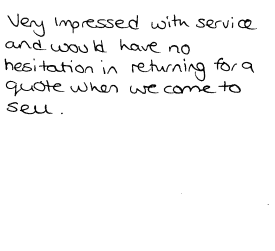 Very impressed with service
and would have no
hesitation in returning for a
quote when we come to
sell.